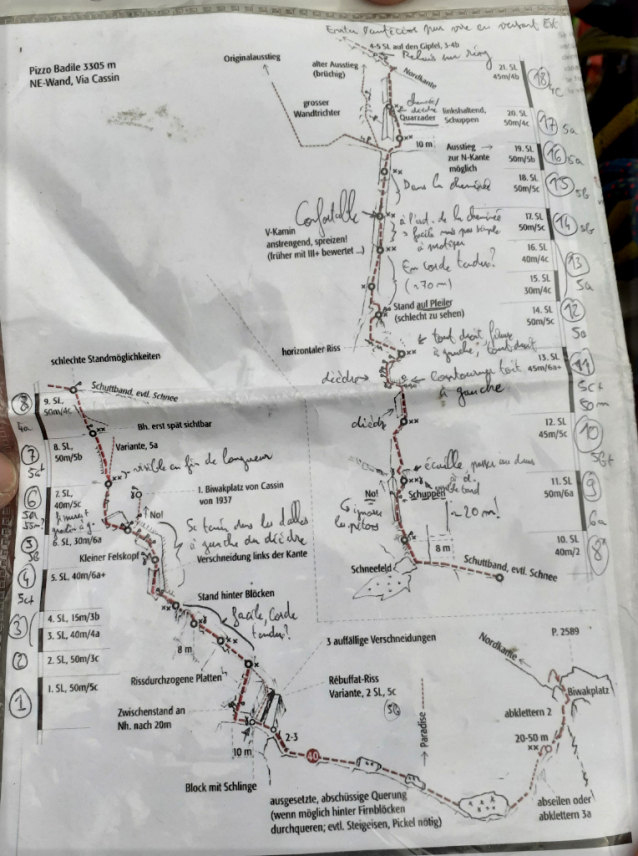 Pizzo Badile 3305 m
NE-Wand, Via Cassin
Originalausstieg
alter Ausstieg
(brüchig)
4-5 SL auf den Gipfel, 3-4b
Nordkante
grosser
Wandtrichter
Quarzader
linkshaltend,
Schuppen
10 m
Ausstieg →
zur N-Kante
möglich
21. SL
45m/4b
18
4c
20. SL
50m/4c
17
5a
19. SL
50m/5b
16
5a
18. SL
50m/5c
15
5b
Dans la cheminée
Confortable
V-Kamin
anstrengend, spreizen!
(früher mit III+ bewertet ...)
17. SL
50m/5c
14
5b
à l'ext. de la cheminée
16. SL
40m/4c
13
5a
15. SL
30m/4c
En corde tendue?
(~70m)
Stand auf Pfeiler
(schlecht zu sehen)
14. SL
50m/5c
12
5a
horizontaler Riss
tout droit
à gauche,
13. SL
45m/6a+
11
5c+
50m
dièdre
contourner toit
à gauche
dièdre
12. SL
45m/5c
10
5b+
écaille, passer au dessus
No!
Schuppen
~20m!
11. SL
50m/6a
9
6a
8 m
10. SL
40m/2
8
Schneefeld
Schuttband, evtl. Schnee
schlechte Standmöglichkeiten
Schuttband, evtl. Schnee
8
4a
9. SL,
50m/4c
Bh. erst spät sichtbar
7
5a+
8. SL,
50m/5b
Variante, 5a
visible en fin de longueur
6
7. SL,
40m/5c
No!
1. Biwakplatz von Cassin
von 1937
5
5b
6. SL, 30m/6a
Se tenir dans les dalles
à gauche du dièdre
Verschneidung links der Kante
Kleiner Felskopf
4
5c+
5. SL, 40m/6a+
Stand hinter Blöcken
facile, corde
tendue!
3
4. SL, 15m/3b
3. SL, 40m/4a
8 m
2
2. SL, 50m/3c
3 auffällige Verschneidungen
Rissdurchzogene Platten
1
1. SL, 50m/5c
Rébuffat-Riss
Variante, 2 SL, 5c
5b
Zwischenstand an
Nh. nach 20m
2-3
10 m
40
Block mit Schlinge
→ Paradise
Nordkante
P. 2589
Biwakplatz
abklettern 2
20-50 m
abseilen oder
abklettern 3a
ausgesetzte, abschüssige Querung
(wenn möglich hinter Firnblöcken
durchqueren; evtl. Steigeisen, Pickel nötig)